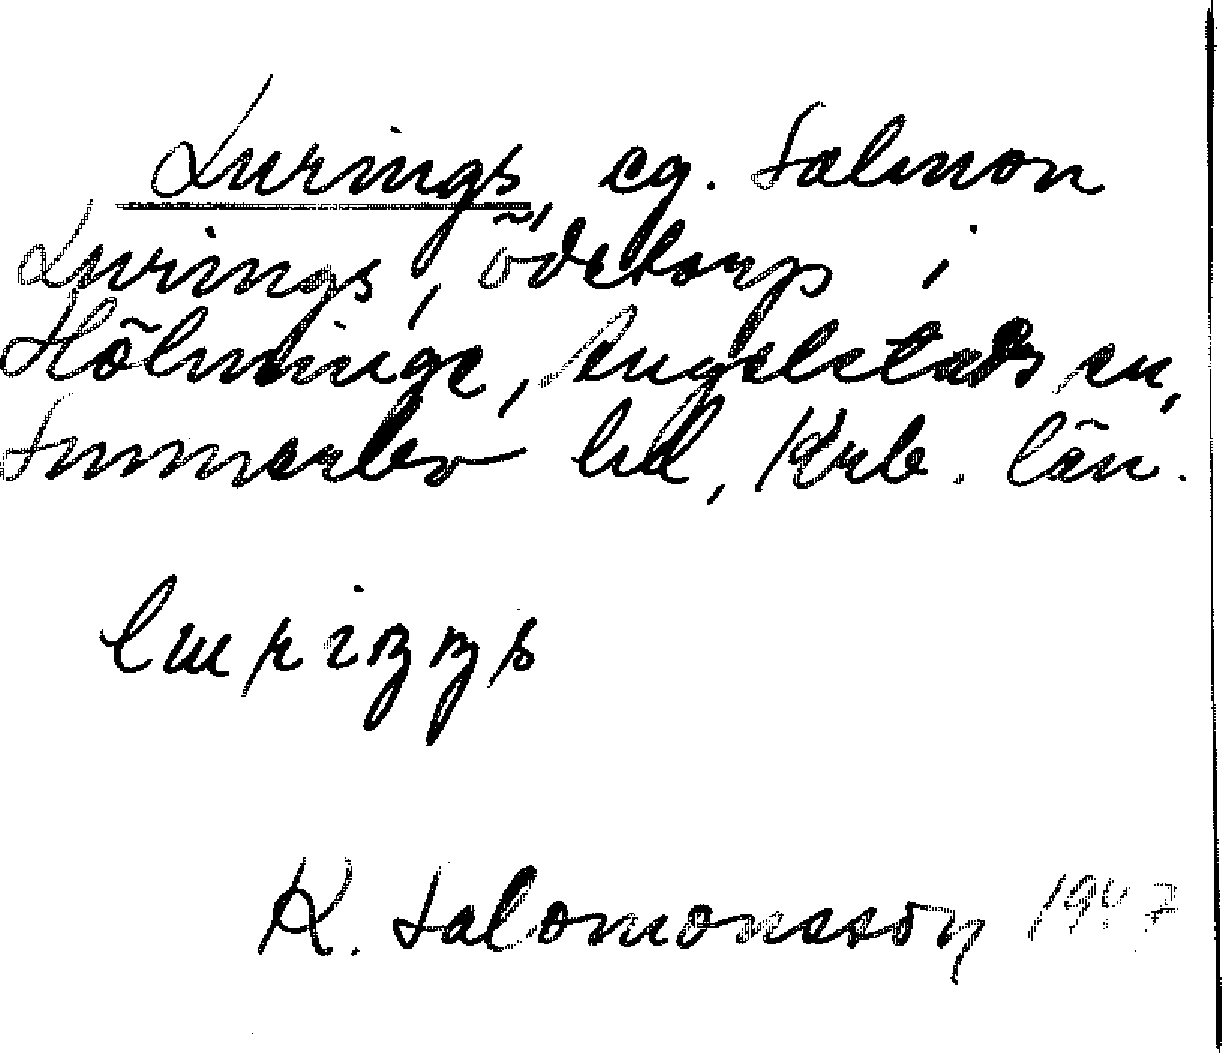 Lurings, eg. Salmon
Lurings, ödetorp i
Hölminge, Angelstads sn,
Sunnerbo hd, Krb. län.
K. Salomonsson 1947